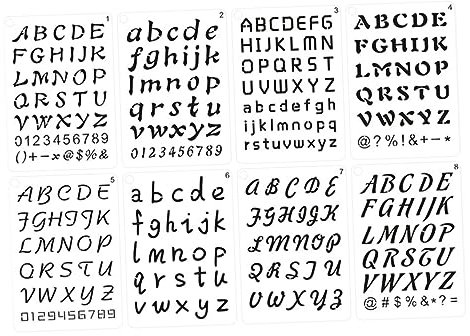 1
ABCDE
FGHIJK
LMNOP
QRSTU
VWXYZ
0123456789
()+-×@$%&
2
abcde
fghijk
lmnop
qrstu
vwxyz
0123456789
3
ABCDEFG
HIJKLMN
OPQRST
UVWXYZ
abcdefg
hijklmn
opqrst
uvwxyz
4
ABCDE
FGHIJK
LMNOP
QRSTU
VWXYZ
@?%!&+-*
5
ABCDE
FGHIJK
LMNOP
QRSTU
VWXYZ
0123456789
6
abcde
fghijk
lmnop
qrstu
vwxyz
7
ABCDE
FGHIJK
LMNOP
QRSTU
VWXYZ
8
ABCDE
FGHIJK
LMNOP
QRSTU
VWXYZ
@#$%&*?=